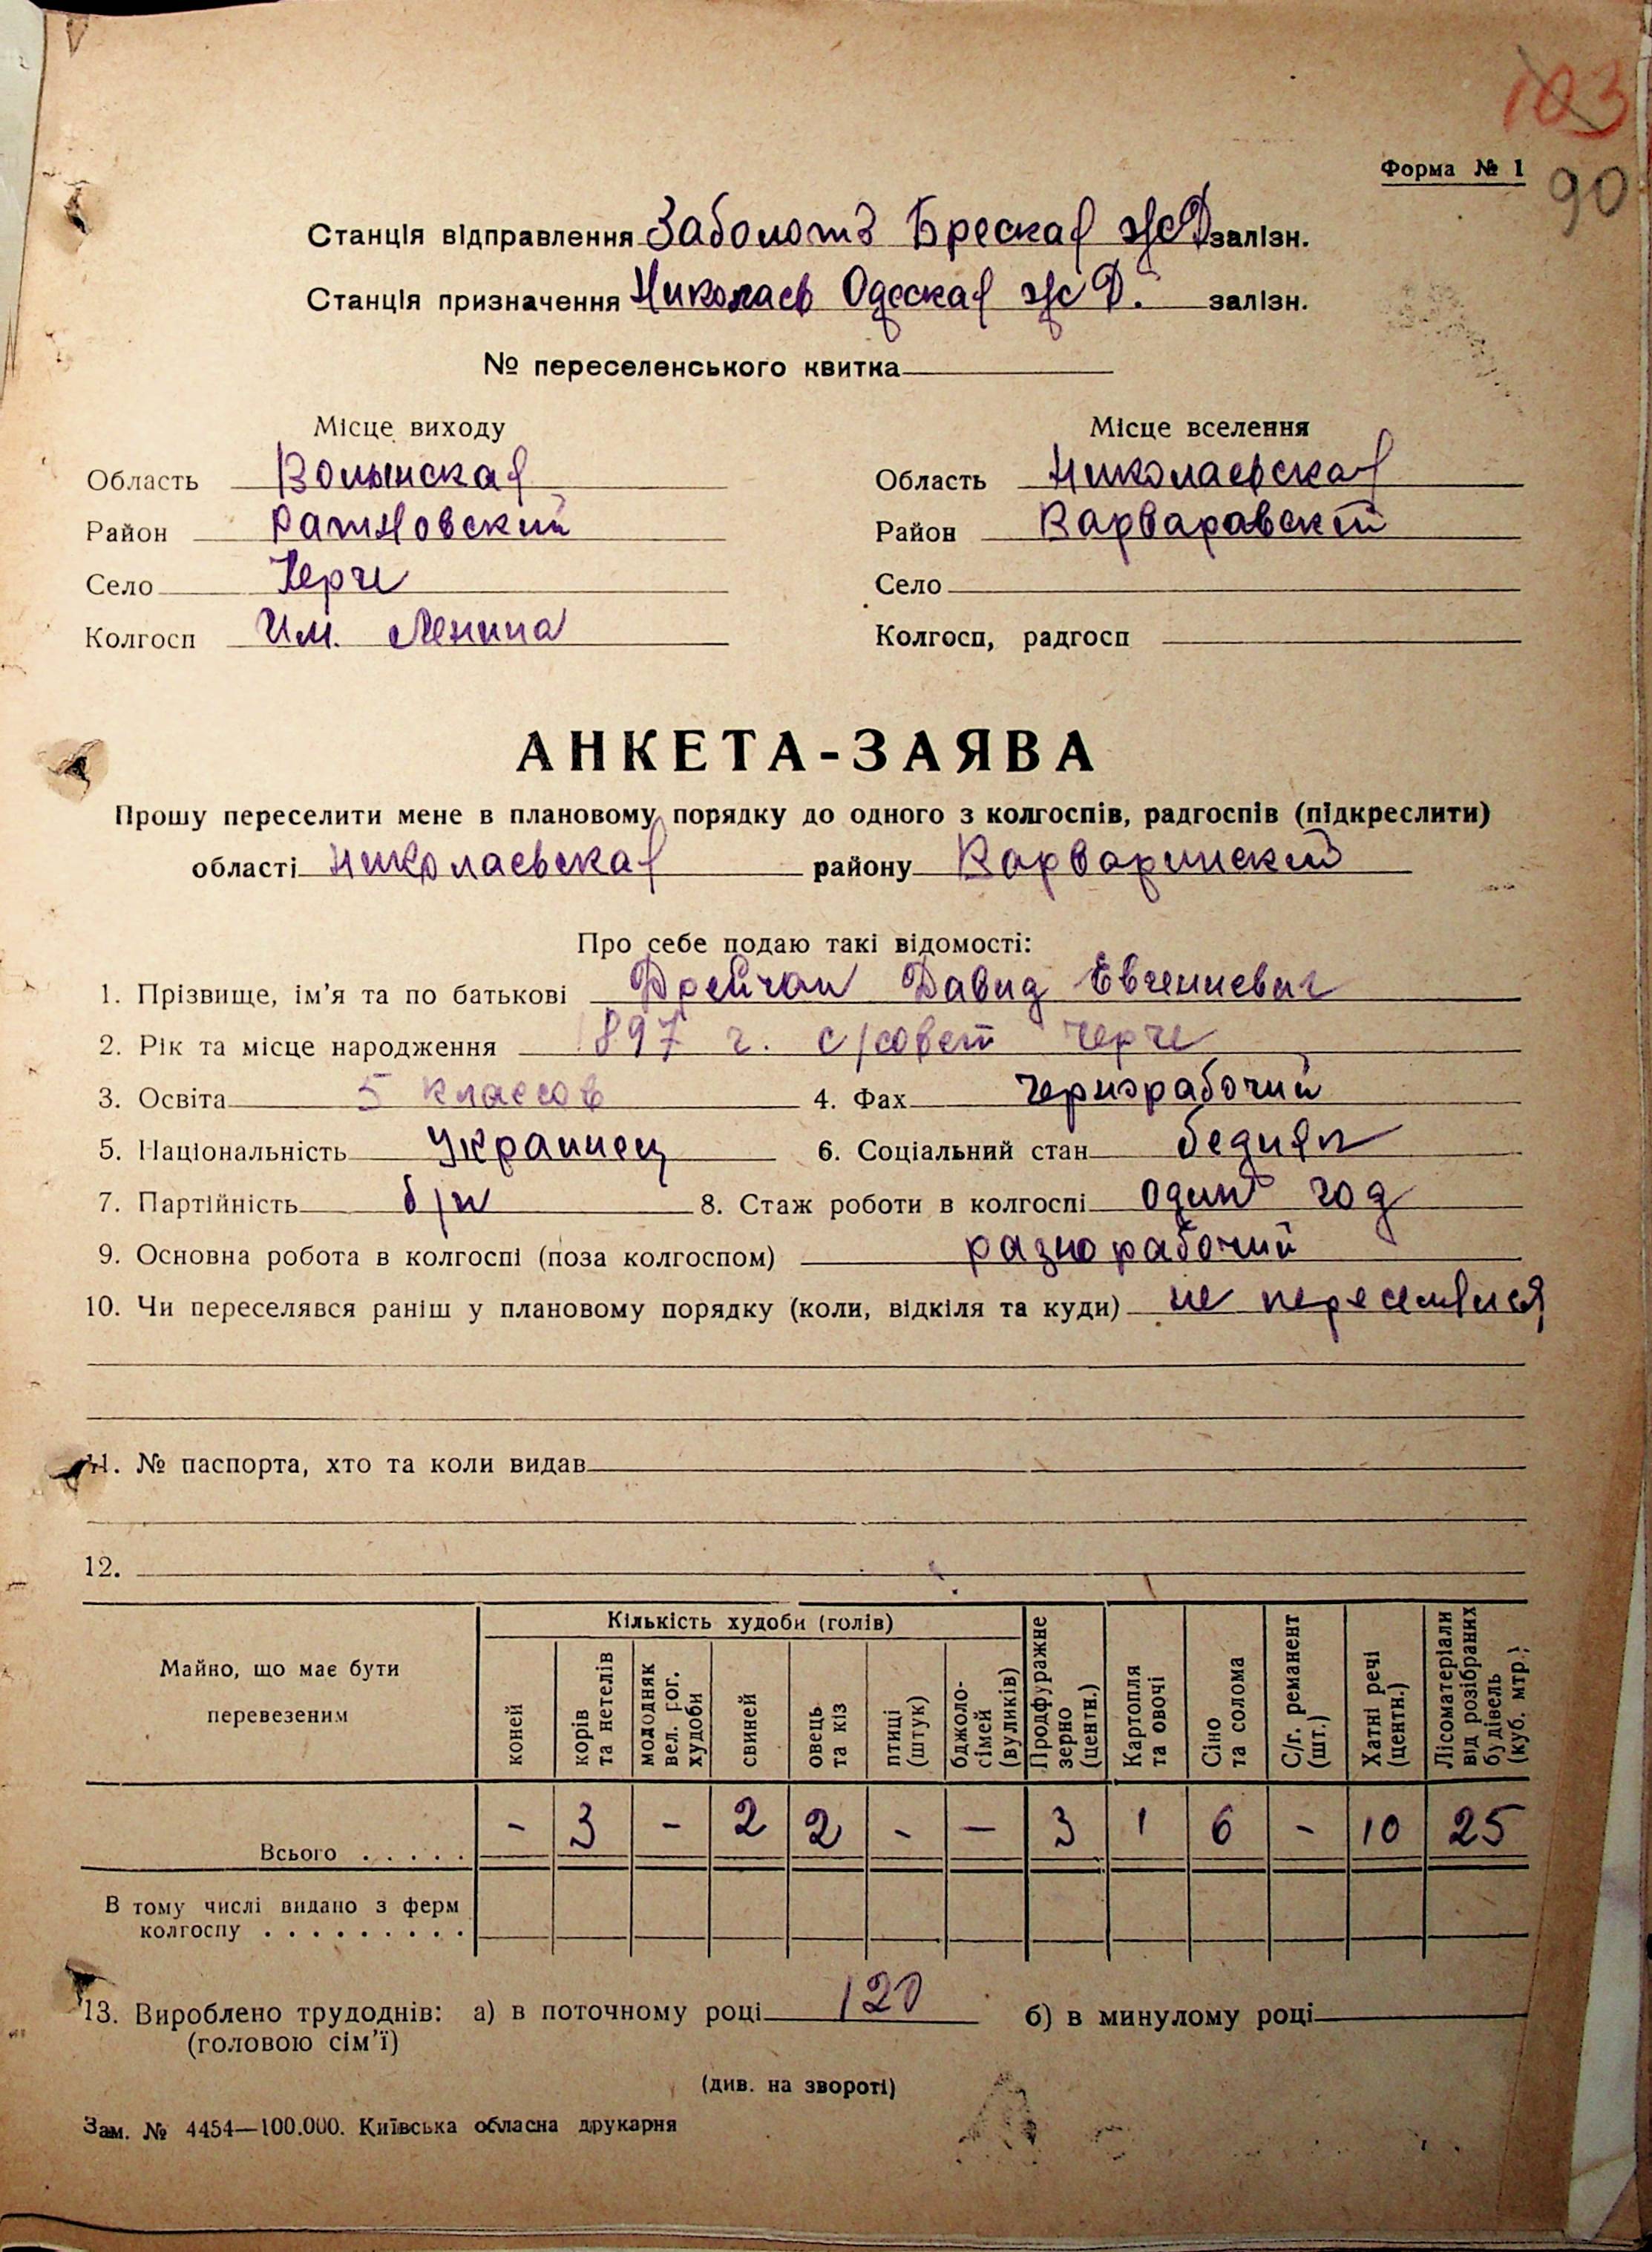 103
Форма № 1
90
Станція відправлення Заболотэ Бреская ж Д залізн.
Станція призначення Николаев Одеская ж Д. залізн.
№ переселенського квитка
Місце виходу Місце вселення
Область Волынская Область Николаевская
Район Ратновский Район Варваравский
Село Черче Село
Колгосп Им. Ленина Колгосп, радгосп
АНКЕТА-ЗАЯВА
Прошу переселити мене в плановому порядку до одного з колгоспів, радгоспів (підкреслити)
області Николаевская району Варваринский
Про себе подаю такі відомості:
1. Прізвище, ім'я та по батькові Давид Евгениевич
2. Рік та місце народження 1897 г. с/совет Черче
3. Освіта 5 классов 4. Фах Чернорабочий
5. Національність Украинец 6. Соціальний стан бедняк
7. Партійність б/п 8. Стаж роботи в колгоспі один год
9. Основна робота в колгоспі (поза колгоспом) разнорабочий
10. Чи переселявся раніш у плановому порядку (коли, відкіля та куди) не переселялся
11. № паспорта, хто та коли видав
12.
Майно, що має бути перевезеним Кількість худоби (голів)
коней корів та нетелів молодняк вел. рог. худоби свиней овець та кіз птиці (штук) бджоло-сімей (вуликів) Продфуражне зерно (центн.) Картопля та овочі Сіно та солома С/г. реманент (шт.) Хатні речі (центн.) Лісоматеріали від розібраних будівель (куб. мтр.)
Всього . . . . . - 3 - 2 2 - - 3 1 6 - 10 25
В тому числі видано з ферм
колгоспу . . . . . . . . .
13. Вироблено трудоднів: а) в поточному році 120 б) в минулому році
(головою сім'ї)
(див. на звороті)
Зам. № 4454—100.000. Київська обласна друкарня